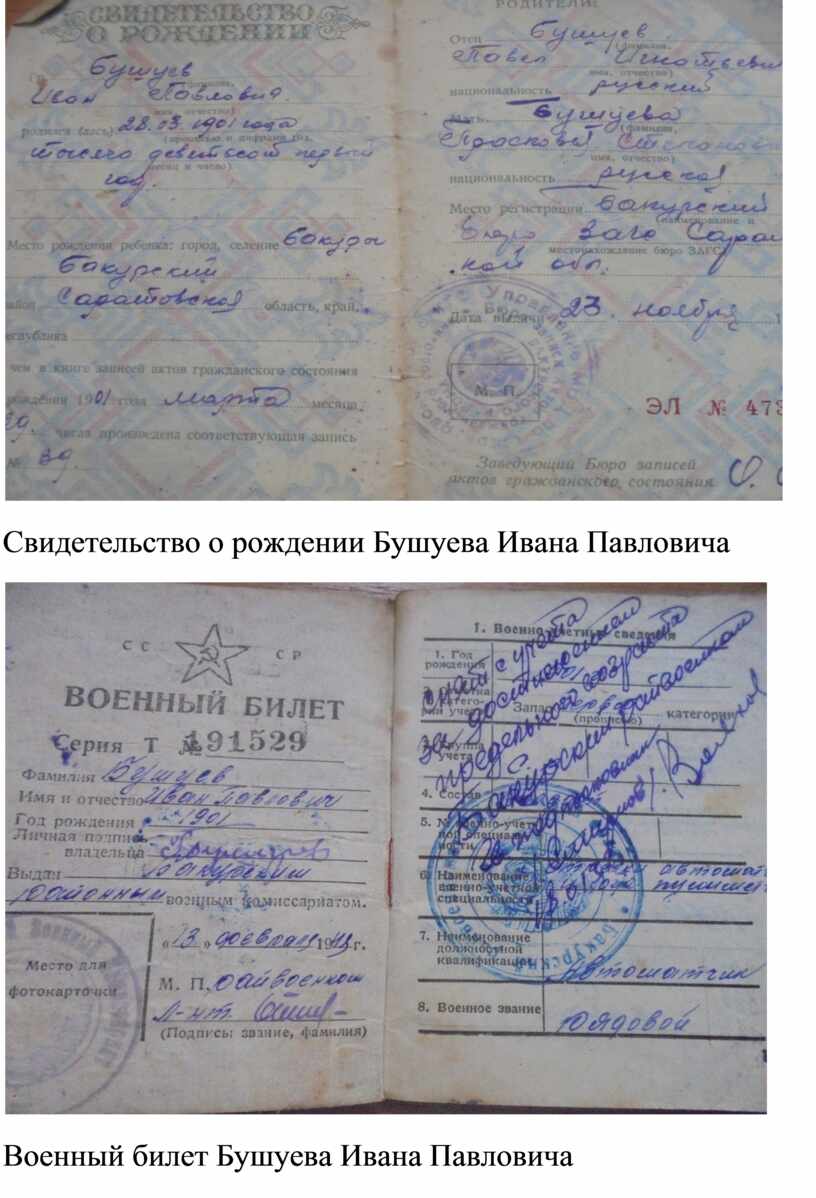 СВИДЕТЕЛЬСТВО
О РОЖДЕНИИ
Бушуев
Иван Павлович
родился (лась) 28.03.1901 года
тысяча девятьсот первый
год.
Место рождения ребенка: город, селение Бакуры
Бакурский
район Саратовская область, край,
республика
чем в книге записей актов гражданского состояния
рождении 1901 года марта месяца
числа произведена соответствующая запись
№ 39.
РОДИТЕЛИ:
Отец Бушуев
(фамилия,
Павел Игнатьевич
имя, отчество)
национальность русский
Мать Бушуева
(фамилия,
Прасковья Степановн
имя, отчество)
национальность русская
Место регистрации Бакурский
(наименование и
бюро Загс Сарат
местонахождение бюро ЗАГС)
кой обл.
Дата выдачи 23. ноября 1
М. П.
ЭЛ № 473
Заведующий Бюро записей
актов гражданского состояния
Свидетельство о рождении Бушуева Ивана Павловича
СС СР
ВОЕННЫЙ БИЛЕТ
Серия Т № 191529
Фамилия Бушуев
Имя и отчество Иван Павлович
Год рождения 1901
Личная подпись
владельца
Выдан Бакурским
районным военным комиссариатом.
"13" февраля 1943 г.
Место для
фотокарточки
М. П. Райвоенком
Л-нт
(Подпись: звание, фамилия)
1. Военно-учетные сведения
1. Год
рождения
Запас
(прописью) категории
снят с учета
за достижением
предельного возраста
Бакурский
учета
4. Состав
5. № военно-учет-
ной специаль-
ности
6. Наименование
военно-учетной
специальности
автомат
пулемет
7. Наименование
должностной
квалификации
Автоматчик
8. Военное звание
Рядовой
Военный билет Бушуева Ивана Павловича